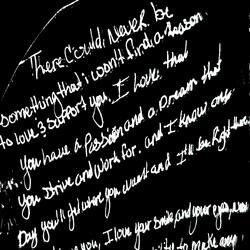 There Could Never be
something that i won't find a reason
to love & support you. I love that
you have a Passion and a Dream that
you strive and work for. and I know any
Day you'll get what you want and I'll be Right there
you, I love your smile and your eyes,
to make any